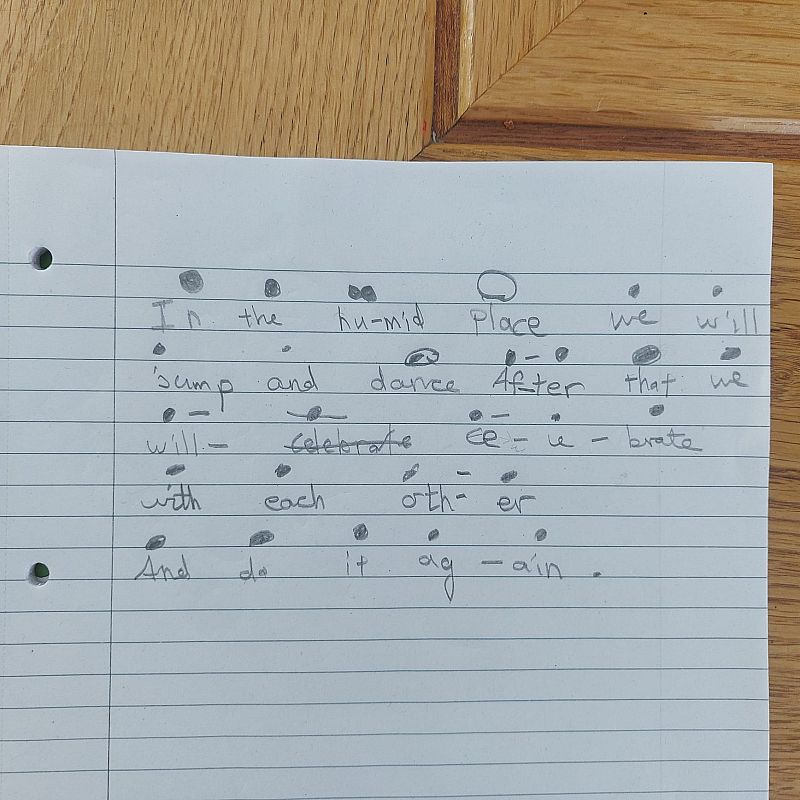 In the hu-mid place we will
jump and dance Af-ter that we
will - celebrate ce - le - brate
with each oth- er
And do it ag - ain .